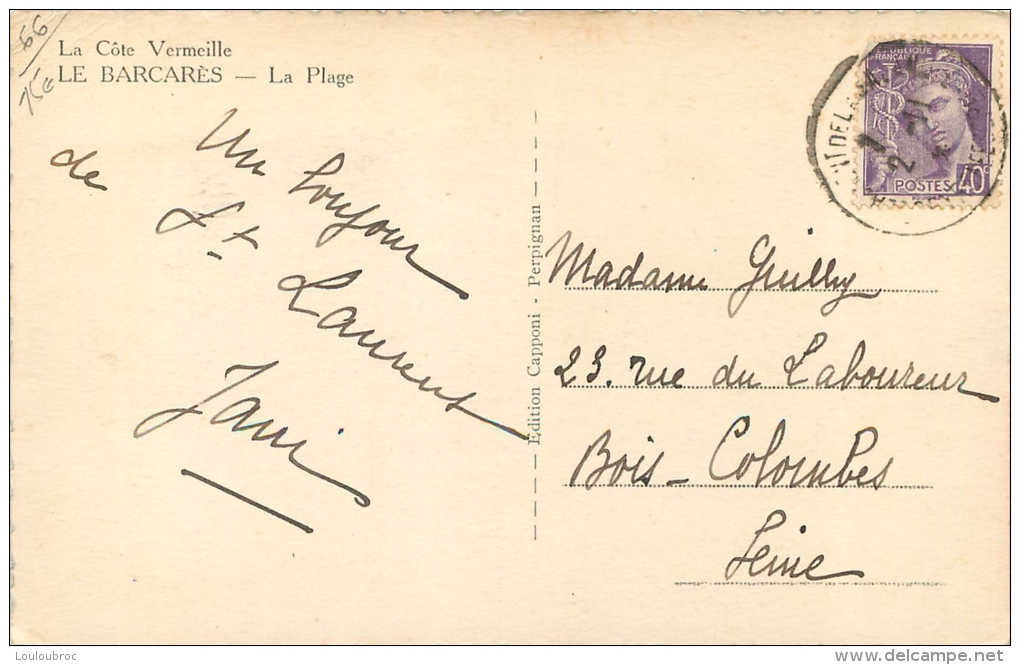 66
15€
La Côte Vermeille
LE BARCARÈS — La Plage
Un bonjour
de St Laurent
Jani
Edition Capponi - Perpignan
RÉPUBLIQUE
FRANÇAISE
POSTES 40c
Madame Guilly
23. rue du Laboureur
Bois-Colombes
Seine
Louloubroc
www.delcampe.net